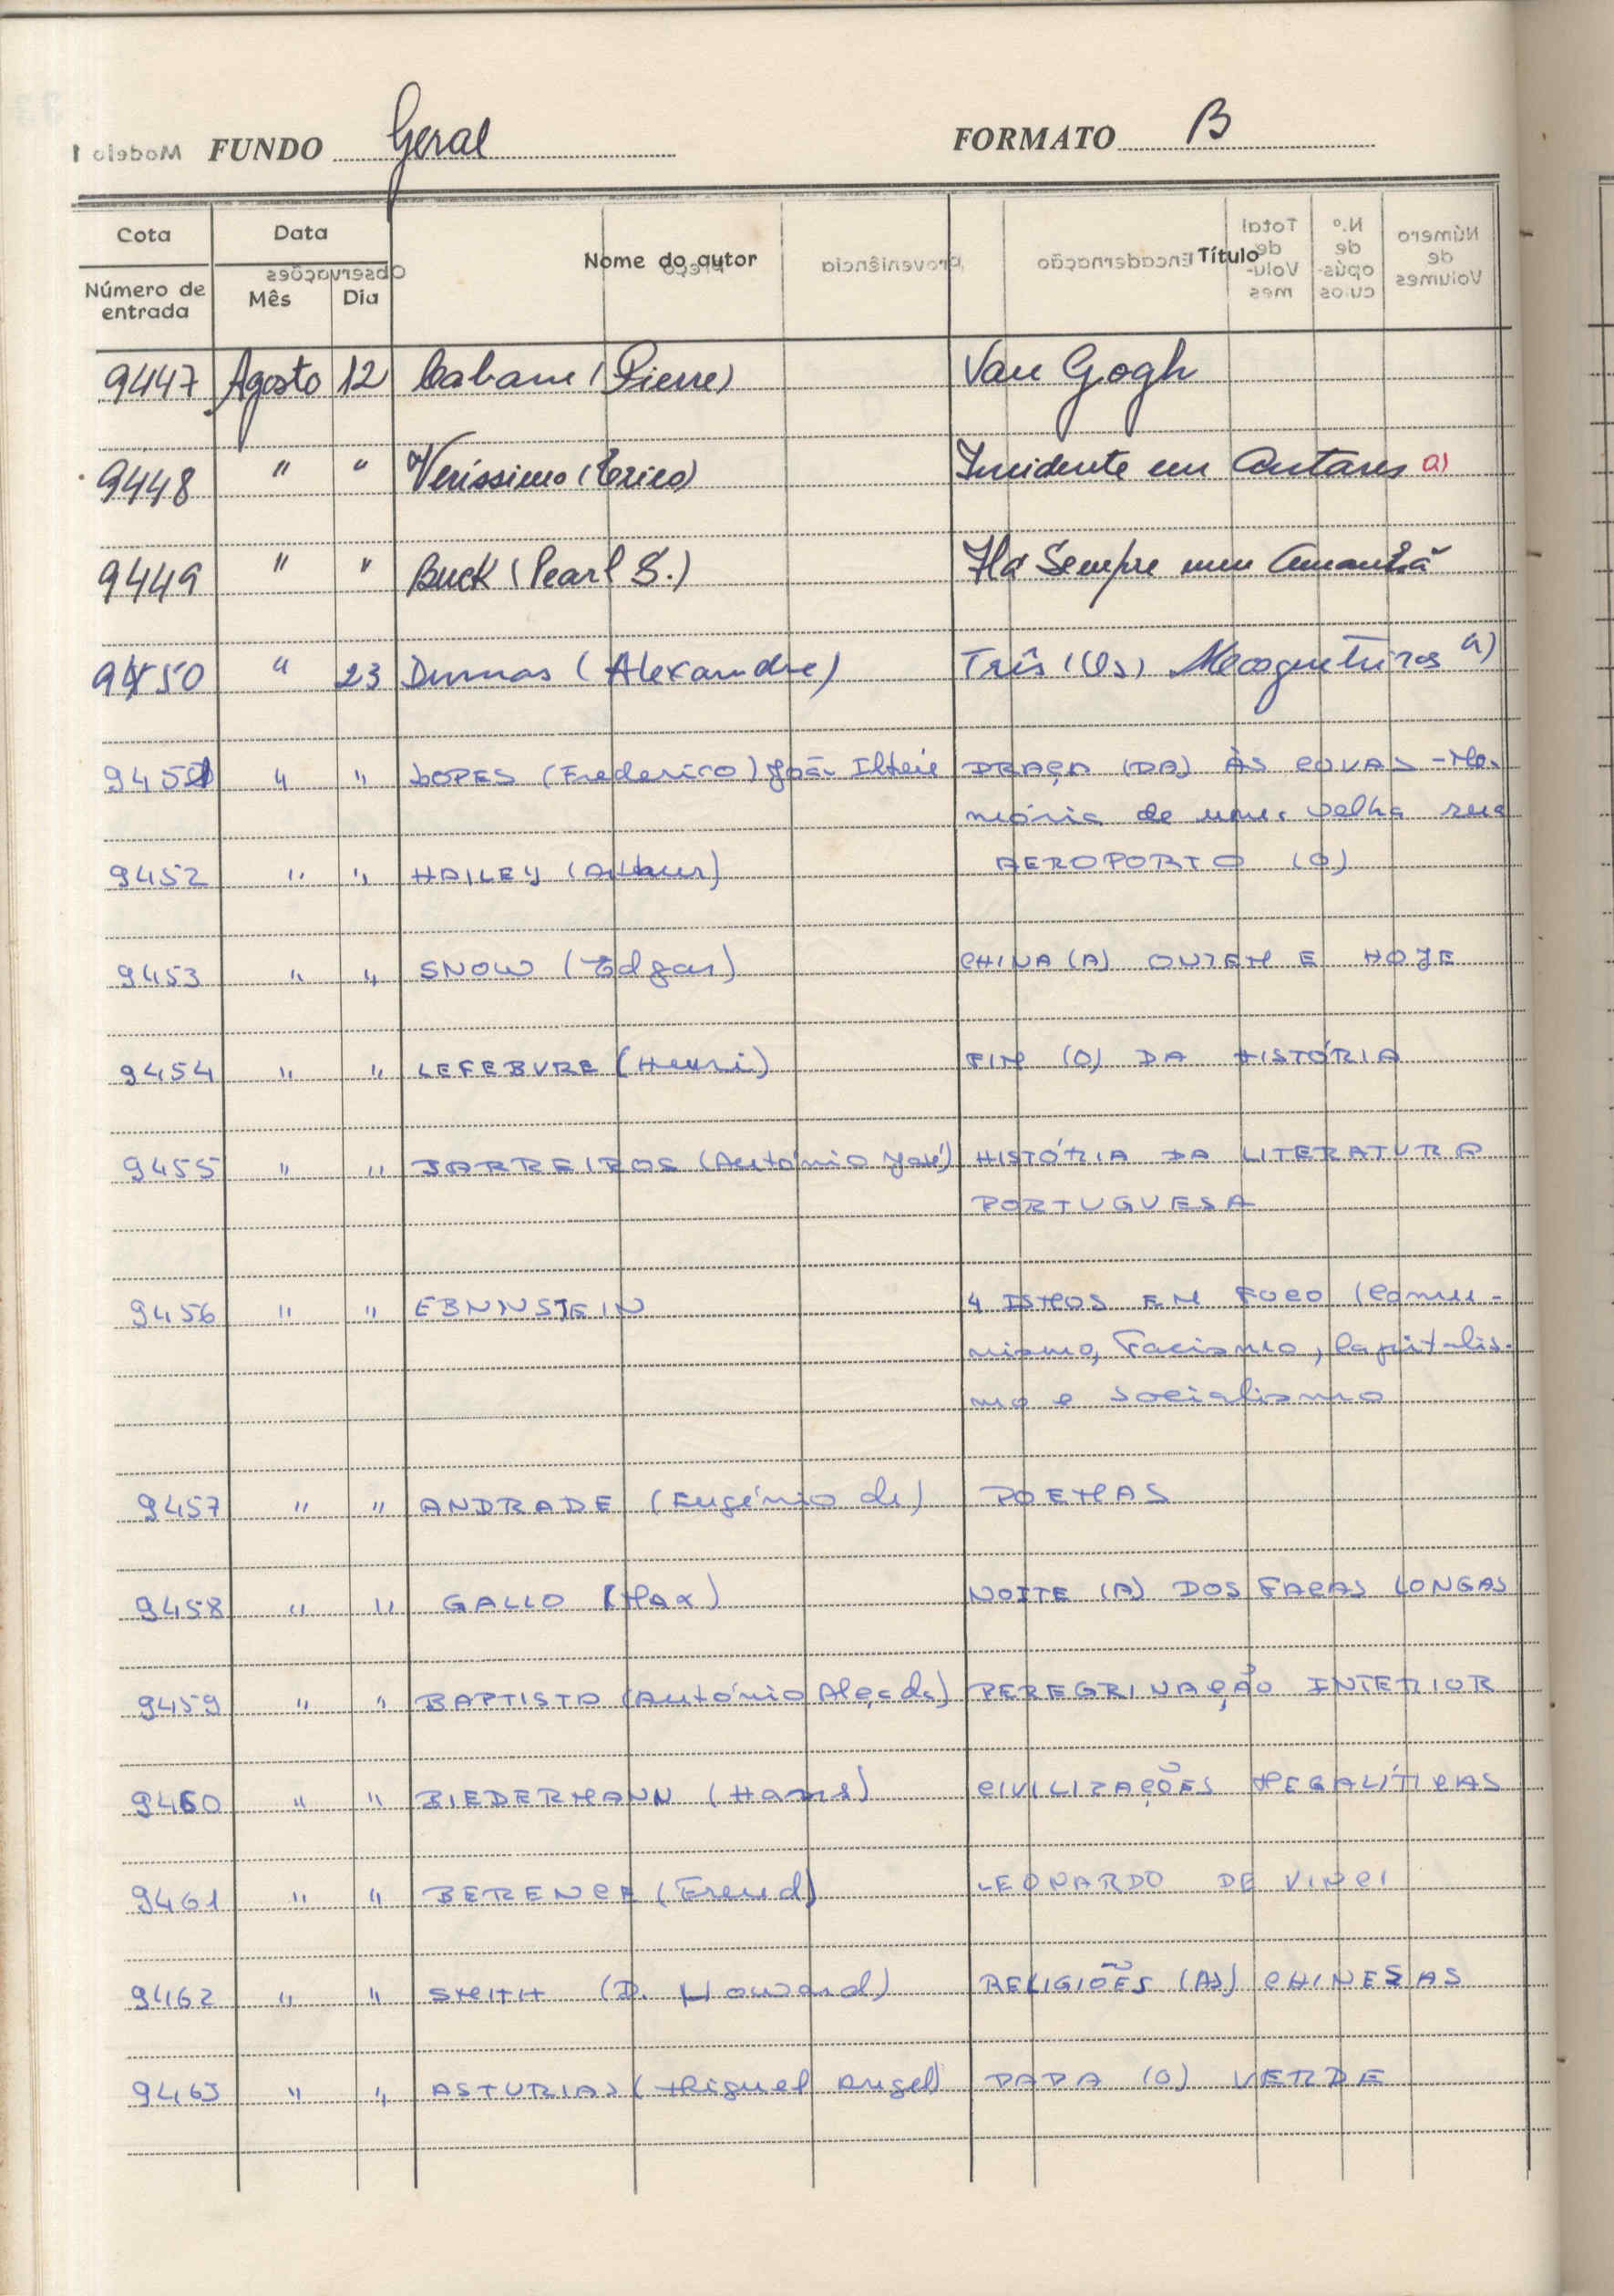 FUNDO Geral FORMATO B
Modelo 1
Cota Data Nome do autor Título
Número de entrada Mês Dia
Observações Preço Proveniência Encadernação Total de Volu-mes N.º de opús-culos Número de Volumes
9447 Agosto 12 Cabane (Pierre) Van Gogh
9448 " " Veríssimo (Erico) Incidente em Antares a)
9449 " " Buck (Pearl S.) Há Sempre um Amanhã
9450 " 23 Dumas (Alexandre) Três (Os) Mosqueteiros a)
9451 " " LOPES (Frederico) João Ilhéu PRAÇA (DA) ÀS COVAS - Me-
mória de uma velha rua
9452 " " HAILEY (Arthur) AEROPORTO (O)
9453 " " SNOW (Edgar) CHINA (A) ONTEM E HOJE
9454 " " LEFEBVRE (Henri) FIM (O) DA HISTÓRIA
9455 " " BARREIROS (António José) HISTÓRIA DA LITERATURA
PORTUGUESA
9456 " " EBNNSTEIN 4 ISMOS EM FOCO (Comu-
nismo, Facismo, Capitalis-
mo e Socialismo
9457 " " ANDRADE (Eugénio de) POEMAS
9458 " " GALLO (Max) NOITE (A) DOS FACAS LONGAS
9459 " " BAPTISTA (António Alçada) PEREGRINAÇÃO INTERIOR
9460 " " BIEDERMANN (Hans) CIVILIZAÇÕES MEGALÍTICAS
9461 " " BERENCE (Freud) LEONARDO DE VINCI
9462 " " SMITH (D. Howard) RELIGIÕES (AS) CHINESAS
9463 " " ASTURIAS (Miguel Angel) PAPA (O) VERDE